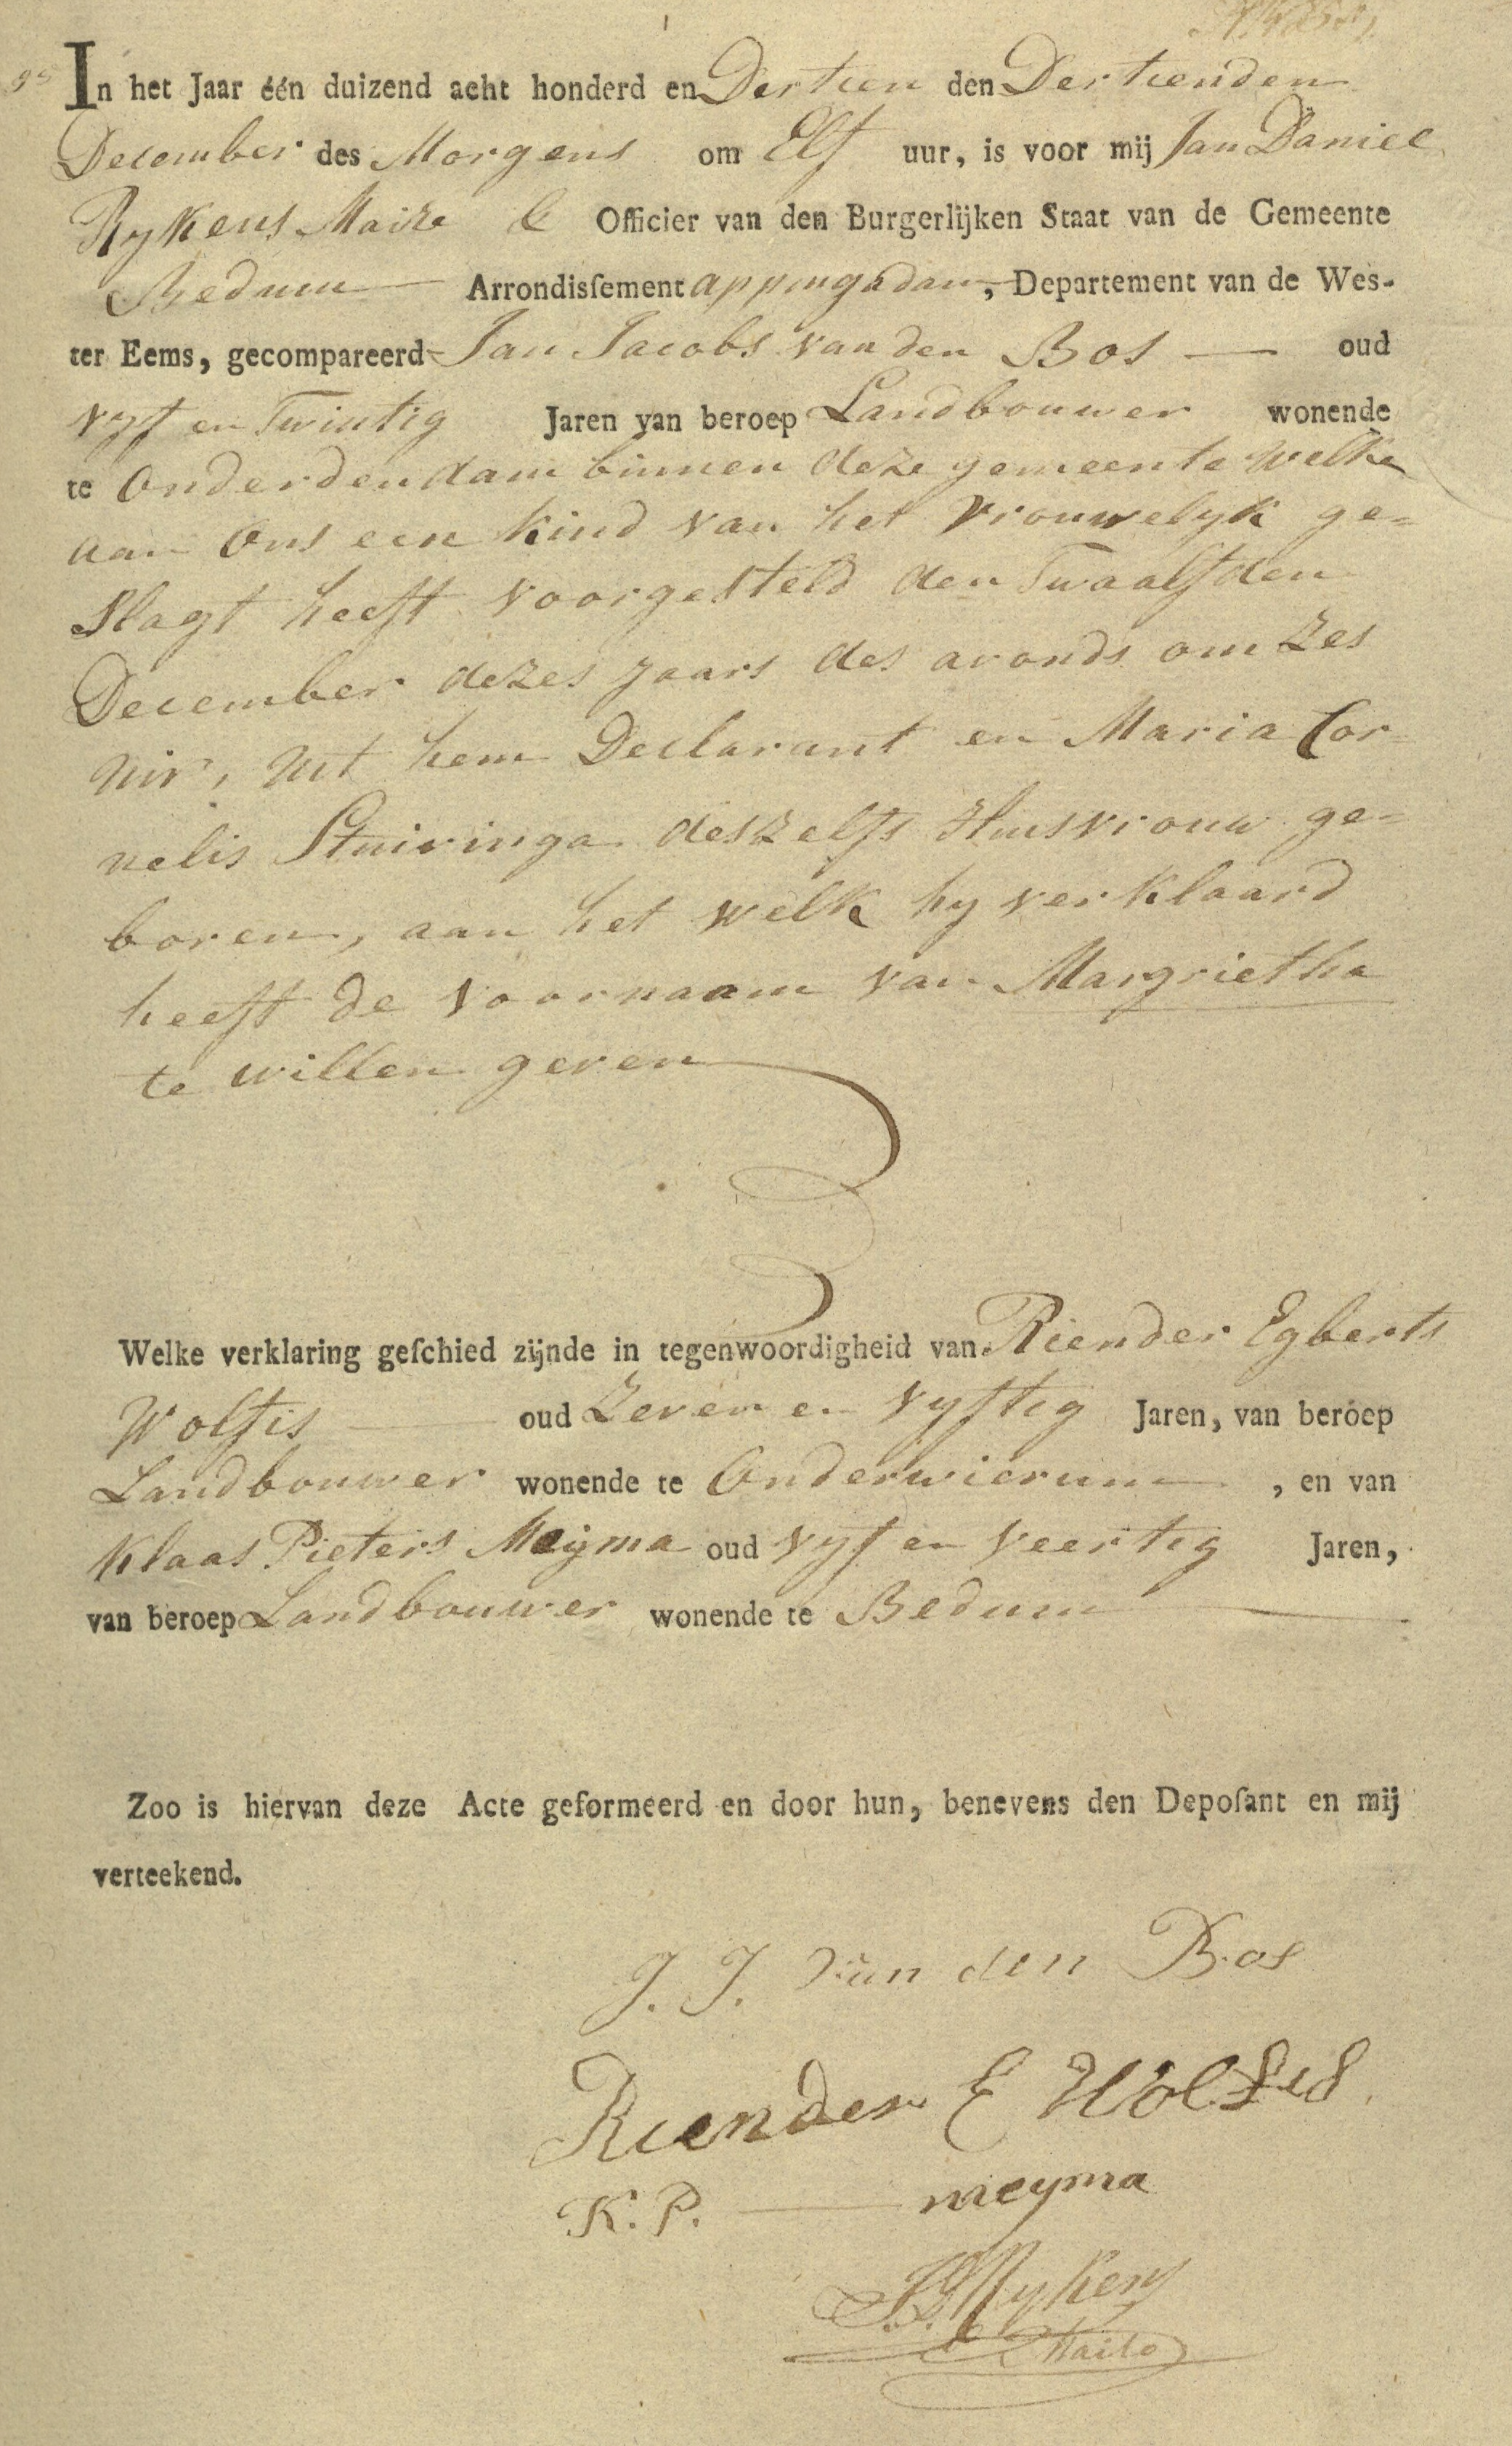 In het Jaar één duizend acht honderd en Dertien den Dertienden
December des Morgens om Elf uur, is voor mij Jan Daniel
Rykens Maire & Officier van den Burgerlijken Staat van de Gemeente
Bedum Arrondisſement appingadam, Departement van de Wes-
ter Eems, gecompareerd Jan Jacobs van den Bos oud
vyf en Twintig Jaren van beroep Landbouwer wonende
te Onderdendam binnen deze gemeente welke
aan Ons een kind van het vrouwelyk ge=
slagt heeft voorgesteld den Twaalfden
December dezes jaars des avonds om Zes
uir, uit hem Declarant en Maria Cor=
nelis Stuivinga deszelfs Huisvrouw ge=
boren, aan het welk hy verklaard
heeft de voornaam van Margrietha
te willen geven
Welke verklaring geſchied zijnde in tegenwoordigheid van Riender Egberts
Wolfis oud Zeven en vyftig Jaren, van beroep
Landbouwer wonende te Onderwierum, en van
Klaas Pieters Meijma oud vyf en veertig Jaren,
van beroep Landbouwer wonende te Bedum
Zoo is hiervan deze Acte geformeerd en door hun, benevens den Depoſant en mij
verteekend.
J. J. van den Bos
Riender E Wolfis
K. P. meyma
J.D. Rykens
Maire